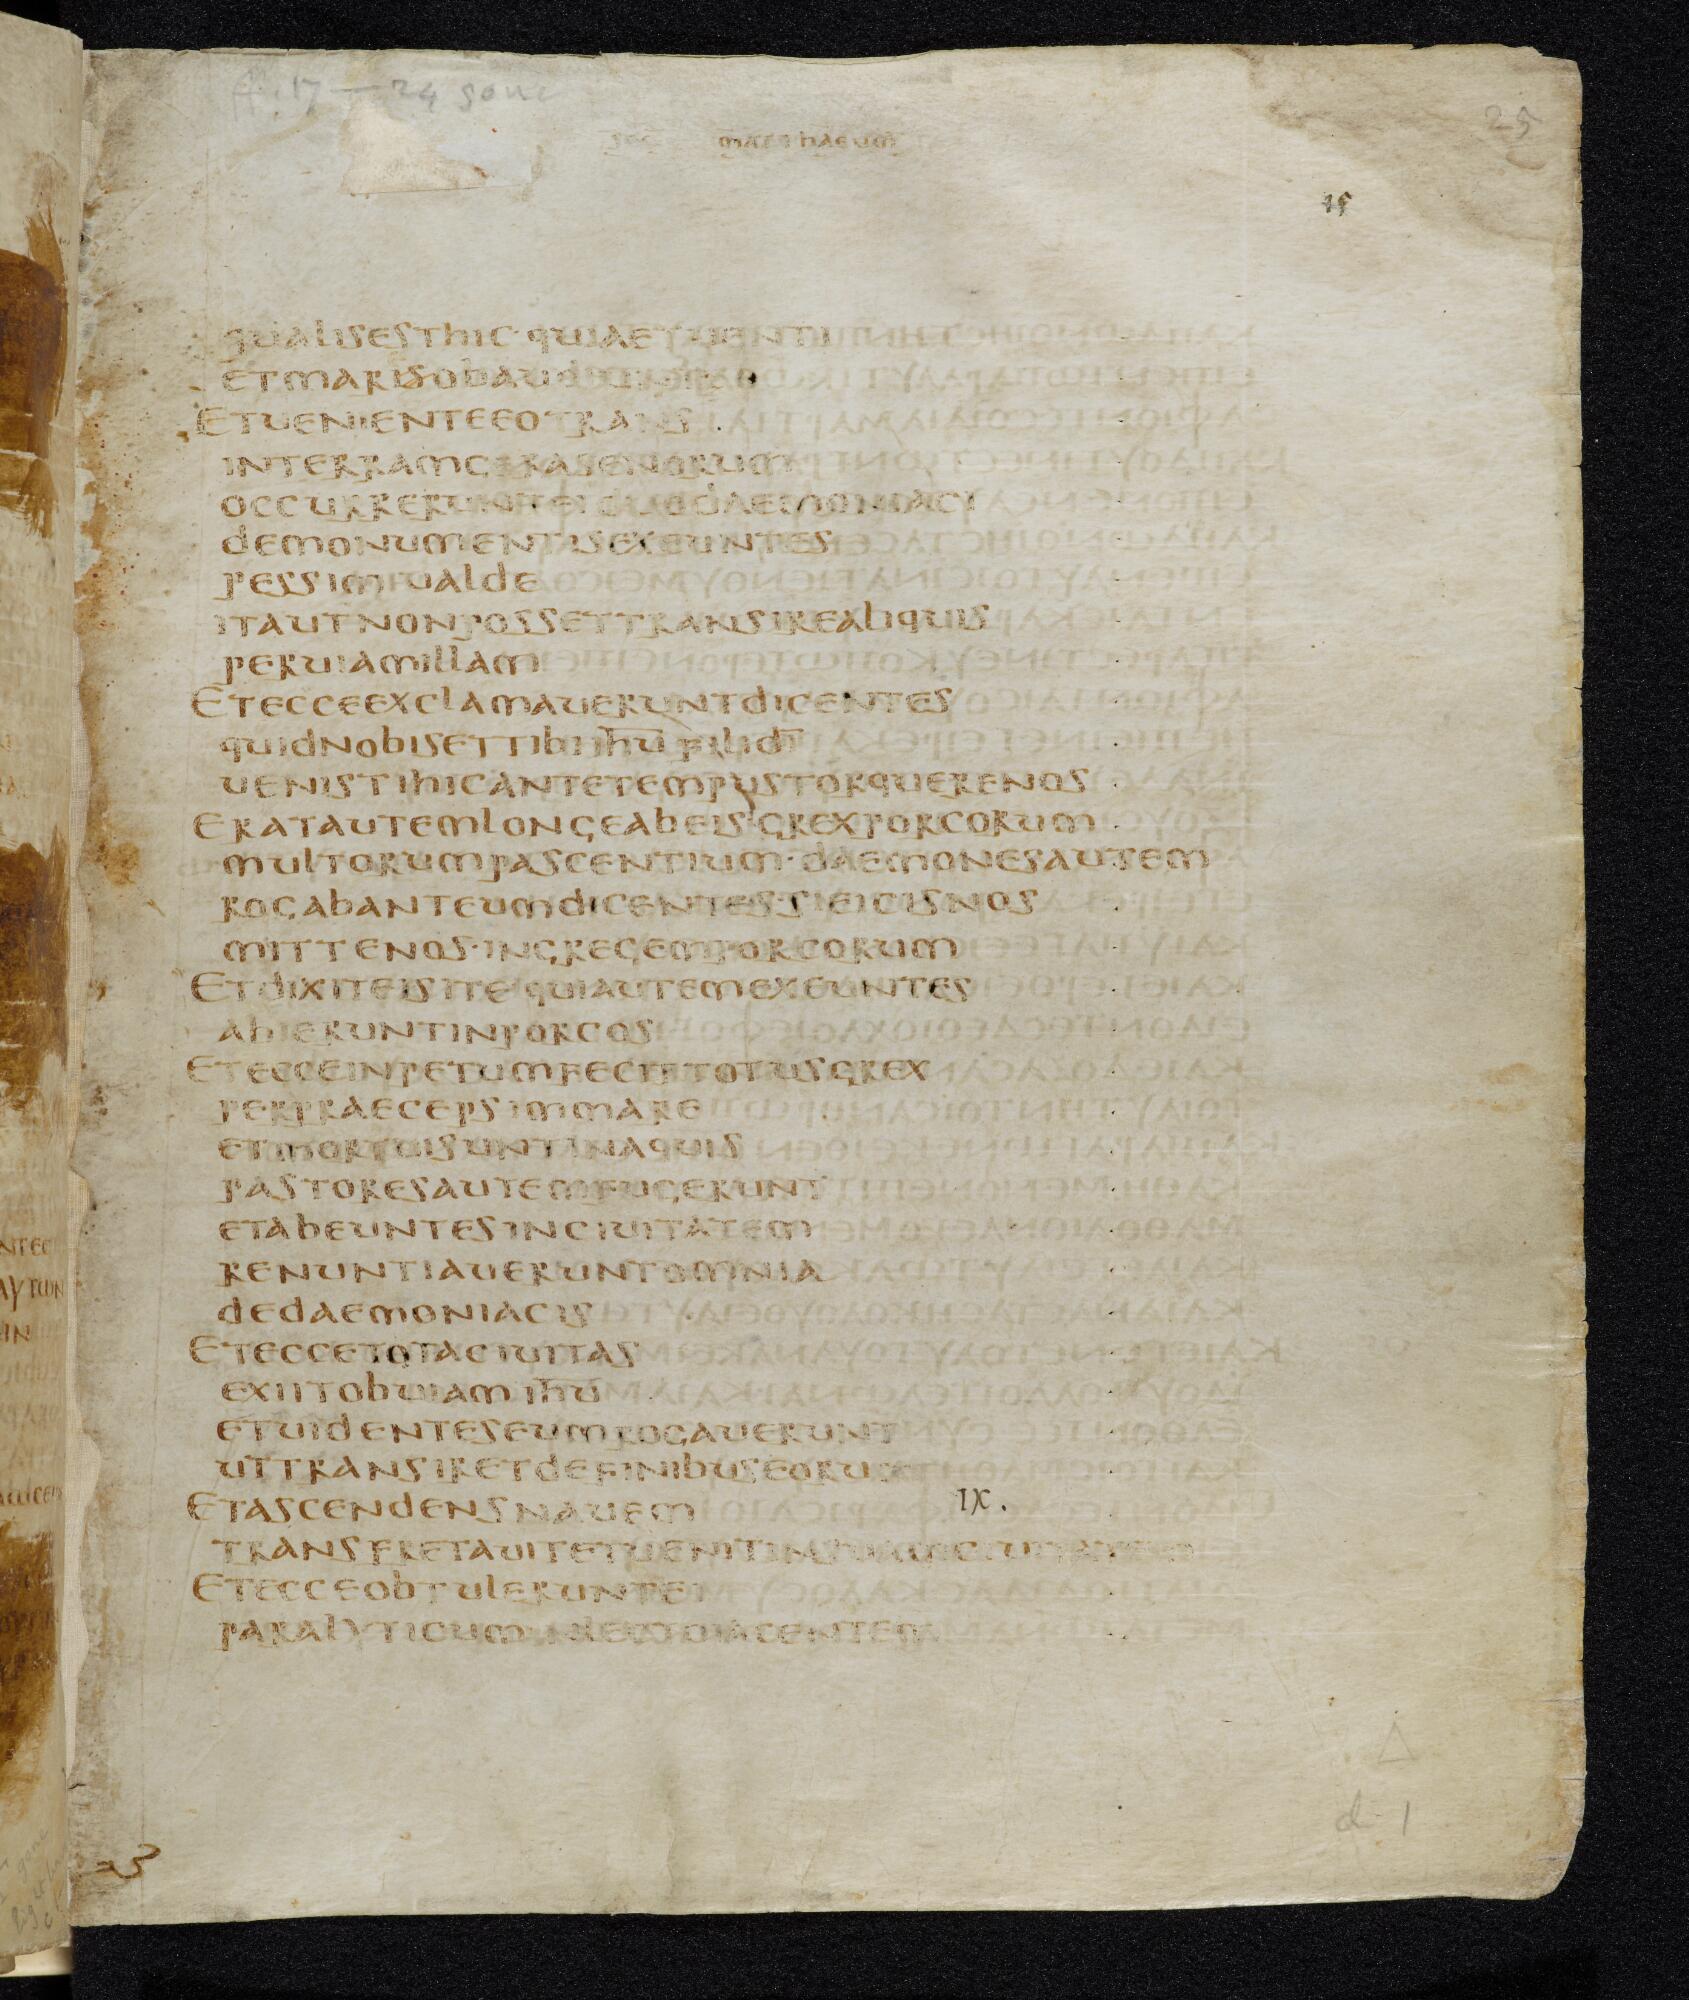 ff. 17 – 24 gone
25
sec mattheum
15
qualisesthic·quiaetuenti
etmaris obaudiunt
Etuenienteeotrans
interramgerasenorum
occurreruntei duodaemoniaci
demonumentisexeuntes
pessimiualde
itautnonpossettransirealiquis
peruiamillam
Etecceexclamaueruntdicentes
quidnobisettibi ihu fili di
uenistihicantetempustorquerenos
Eratautemlongeabeisgrexporcorum
multorumpascentium·daemonesautem
rogabanteumdicentes·sieicisnos
mittenos·ingregemporcorum
Etdixiteis ite quiautemexeuntes
abieruntinporcos
Etecceinpetumfecittotusgrex
perpraeceps immare
etmortuisuntinaquis
pastoresautemfugerunt
etabeuntesinciuitatem
renuntiaueruntomnia
dedaemoniacis
Eteccetotaciuitas
exiitobuiam ihu
etuidenteseumrogauerunt
uttransiretdefinibuseorum
Etascendensnauem
IX.
transfretauitetuenitinsuamciuitatem
Etecceobtuleruntei
paralyticum inlectoiacentem
d 1